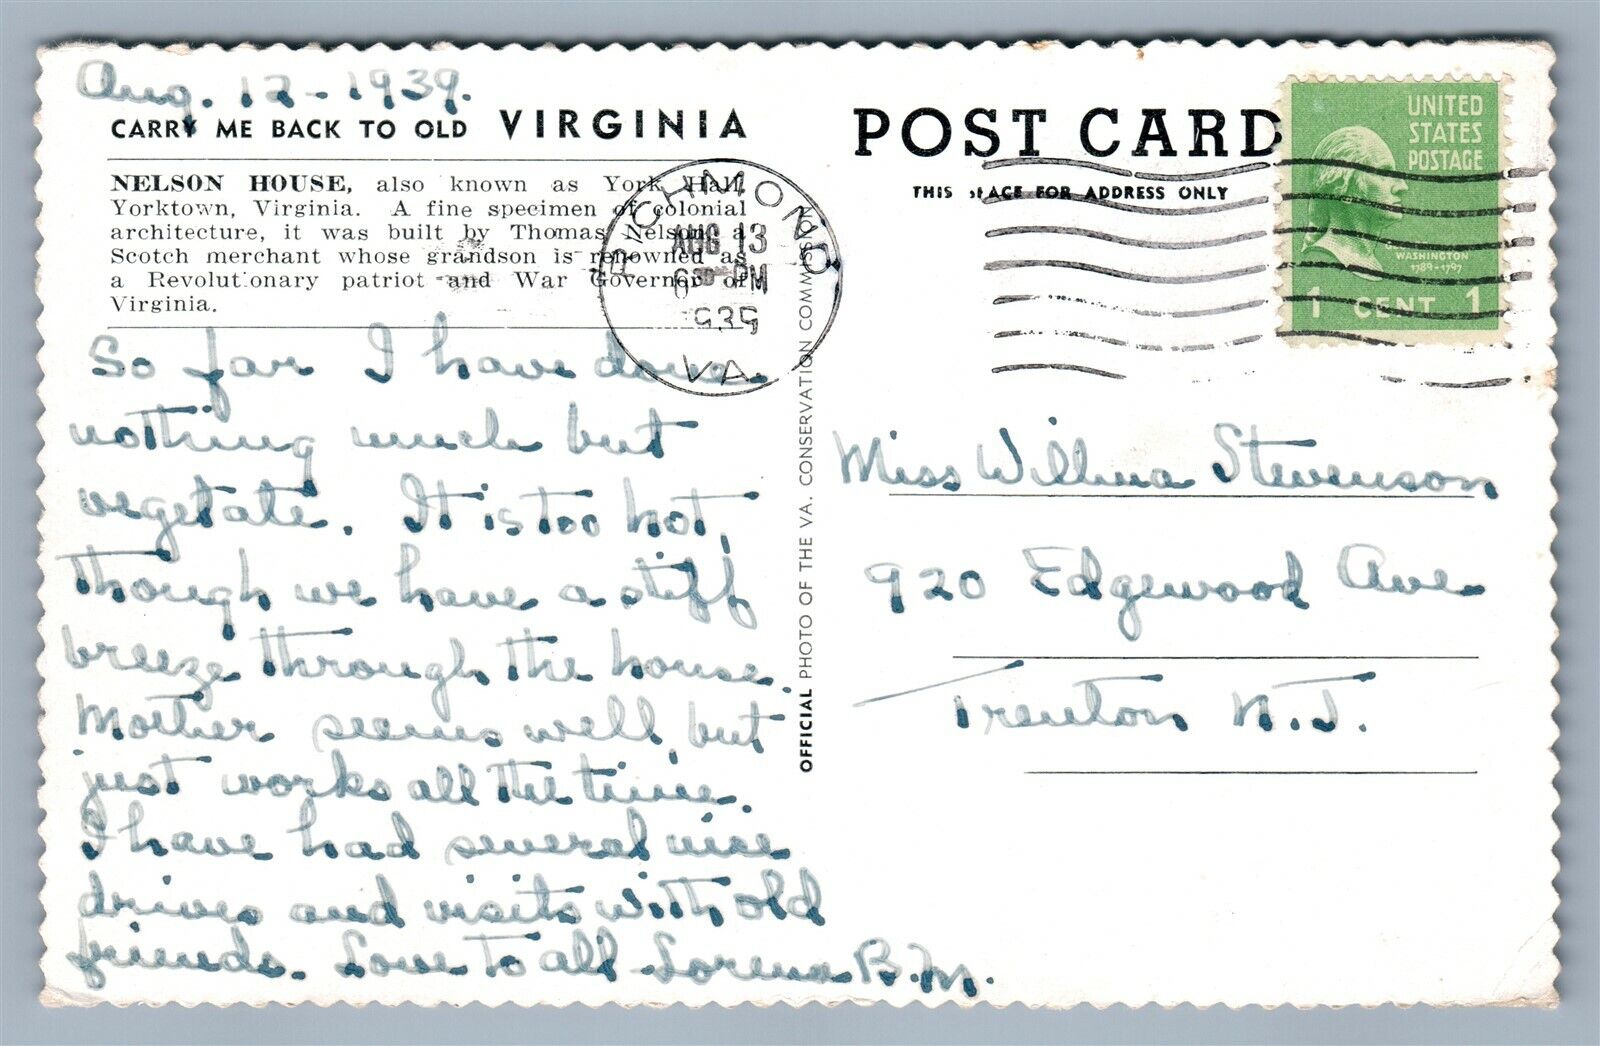 Aug. 12-1939.
CARRY ME BACK TO OLD VIRGINIA
NELSON HOUSE, also known as York Hall,
Yorktown, Virginia. A fine specimen of colonial
architecture, it was built by Thomas Nelson, a
Scotch merchant whose grandson is renowned as
a Revolutionary patriot and War Governor of
Virginia.
So far I have done
nothing much but
vegetate. It is too hot,
though we have a stiff
breeze through the house.
Mother seems well, but
just works all the time.
I have had several nice
drives and visits with old
friends. Love to all Lorena B.M.
OFFICIAL PHOTO OF THE VA. CONSERVATION COMMISSION
POST CARD
THIS SPACE FOR ADDRESS ONLY
RICHMOND
AUG 13
6 30 PM
1939
VA.
UNITED
STATES
POSTAGE
WASHINGTON
1789-1797
1 CENT 1
Miss Wilma Stevenson
920 Edgewood Ave
Trenton N.J.